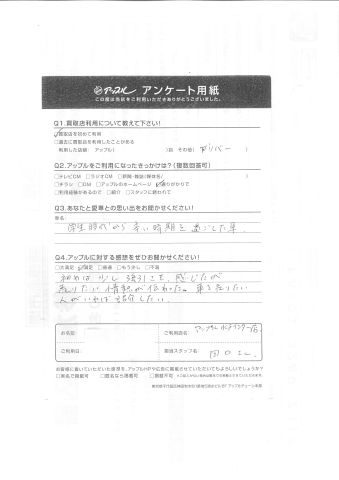 アップル アンケート用紙
この度は当店をご利用いただきありがとうございました。
Q1.買取店利用について教えて下さい!
買取店を初めて利用
□過去に買取店を利用したことがある
利用した店舗: アップル( )店 その他( ガリバー )
Q2.アップルをご利用になったきっかけは?(複数回答可)
□テレビCM □ラジオCM □新聞・雑誌(媒体名/ )
□チラシ □DM □アップルのホームページ 通りがかりで
□利用経験があるので □紹介 □スタッフに誘われて
Q3.あなたと愛車との思い出をお聞かせください!
車名:
学生時代から 辛い時期を 過ごした車.
Q4.アップルに対する感想をぜひお聞かせください!
□大満足 満足 □普通 □もう少し □不満
初めは 少し 強引にも 感じたが
売りたい 情熱が伝わった。 車を売りたい
人がいれば 紹介したい.
お名前:
ご利用店名: アップル
ご利用日:
担当スタッフ名: 田口
お客様に書いていただいた感想を、アップルHPや広告に掲載させていただいてもよろしいでしょうか?
□実名で掲載可 □匿名なら掲載可 □掲載不可